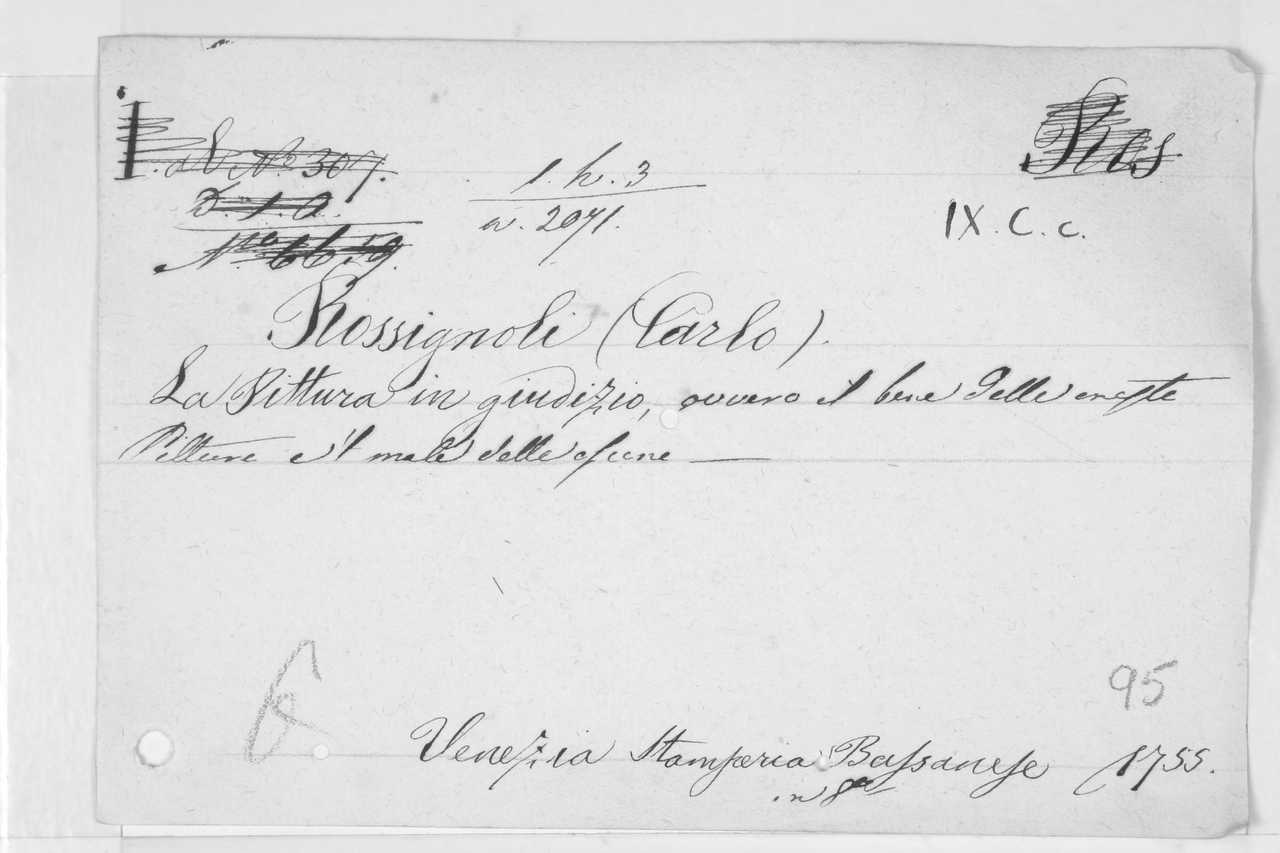 N.º 307.
D. 1. a.
N.ro 6619.
1. h. 3
a. 2071.
Ros
IX. C. c.
Rossignoli (Carlo).
La Pittura in giudizio, ovvero il bene delle oneste
Pitture e'l male delle oscene
95
Venezia Stamperia Bassanese 1755.
in 8º